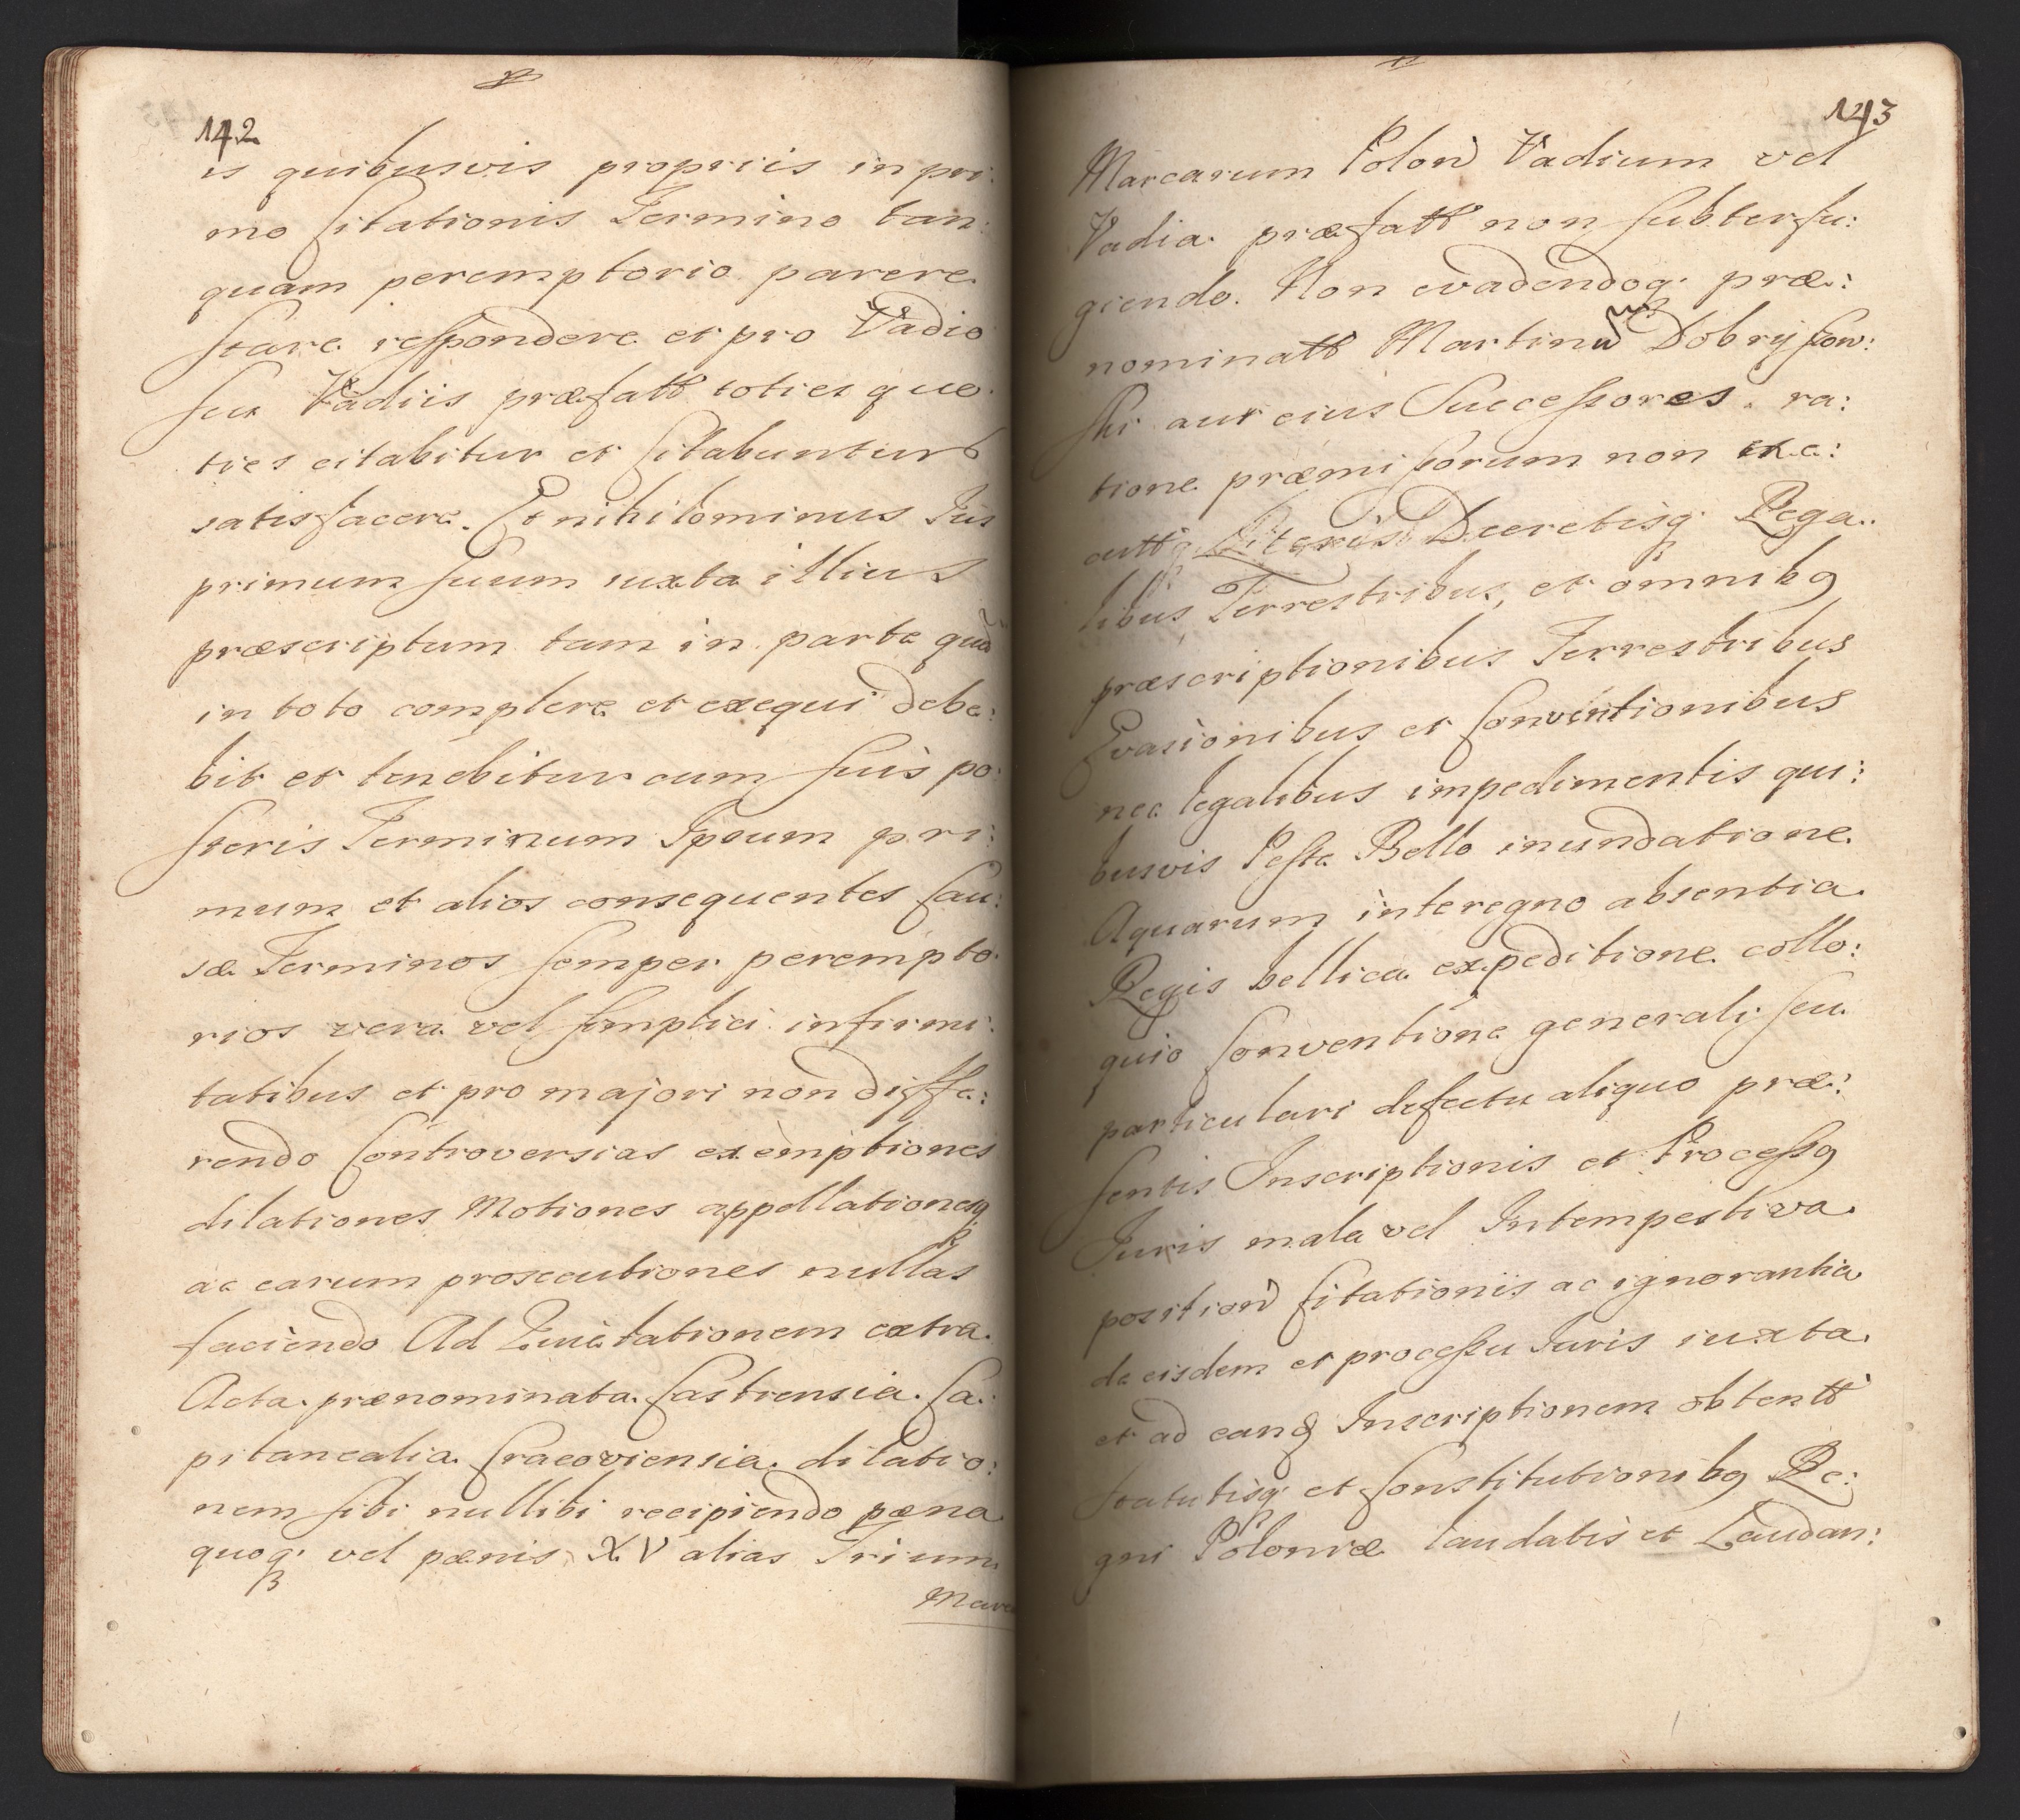 142
is quibusvis propriis in pri:
mo Citationis Termino tan:
quam peremptorio parere
stare respondere et pro Vadio
seu Vadiis præfatt toties quo:
ties citabitur et Citabuntur
satisfacere. Et nihilominus Jus
primum suum iuxta illius
præscriptum tam in parte quã
in toto complere et exequi debe:
bit et tenebitur cum suis po:
steris Terminum Ipsum pri:
mum et alios consequentes Cau:
sæ Terminos semper perempto:
rios vera vel simplici infirmi:
tatibus et pro majori non diffe:
rendo Controversias exemptiones
dilationes Motiones appellationesq
ac earum prosecutiones nullas
faciendo Ad extra
Acta prænominata Castrensia Ca:
pitanealia Cracoviensia dilatio:
nem sibi nullibi recipiendo pæna
quoq vel pænis XV alias Trium
Marca
143
Marcarum Polon Vadium vel
Vadia præfatt non subterfu:
giendo. Non evadendoq præ:
nominatt Martinus Dobryszow:
ski aut eius Successores ra:
tione præmissorum non exe:
cuttq Literis Decretisq Rega:
libus Terrestribus, et omnibq
præscriptionibus Terrestribus
Evasionibus et Conventionibus
nec legalibus impedimentis qui:
busvis Peste Bello inundatione
Aquarum interegno absentia
Regis bellica expeditione collo:
quio Conventione generali seu
particulari defectu aliquo præ:
sentis Inscriptionis et Processq
Juris mala vel Intempestiva
position Citationis ac ignorantia
de eisdem et processu Juris iuxta
et ad eanq Inscriptionem obtentt
statutisq et Constitutionibq Re:
gni Poloniæ laudatis et Laudan: